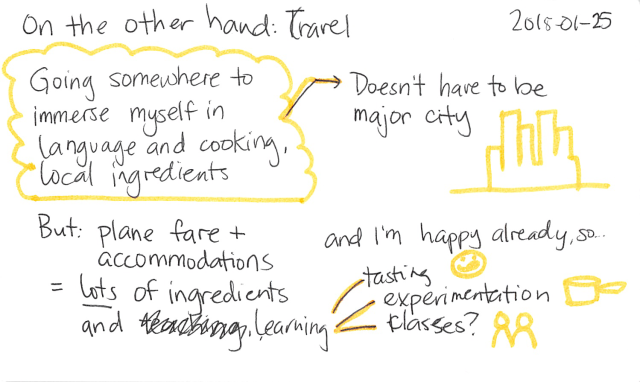 On the other hand: Travel
2018-01-25
Going somewhere to
immerse myself in
language and cooking,
local ingredients
Doesn't have to be
major city
But: plane fare +
accommodations
= lots of ingredients
and learning
and I'm happy already, so...
tasting
experimentation
classes?